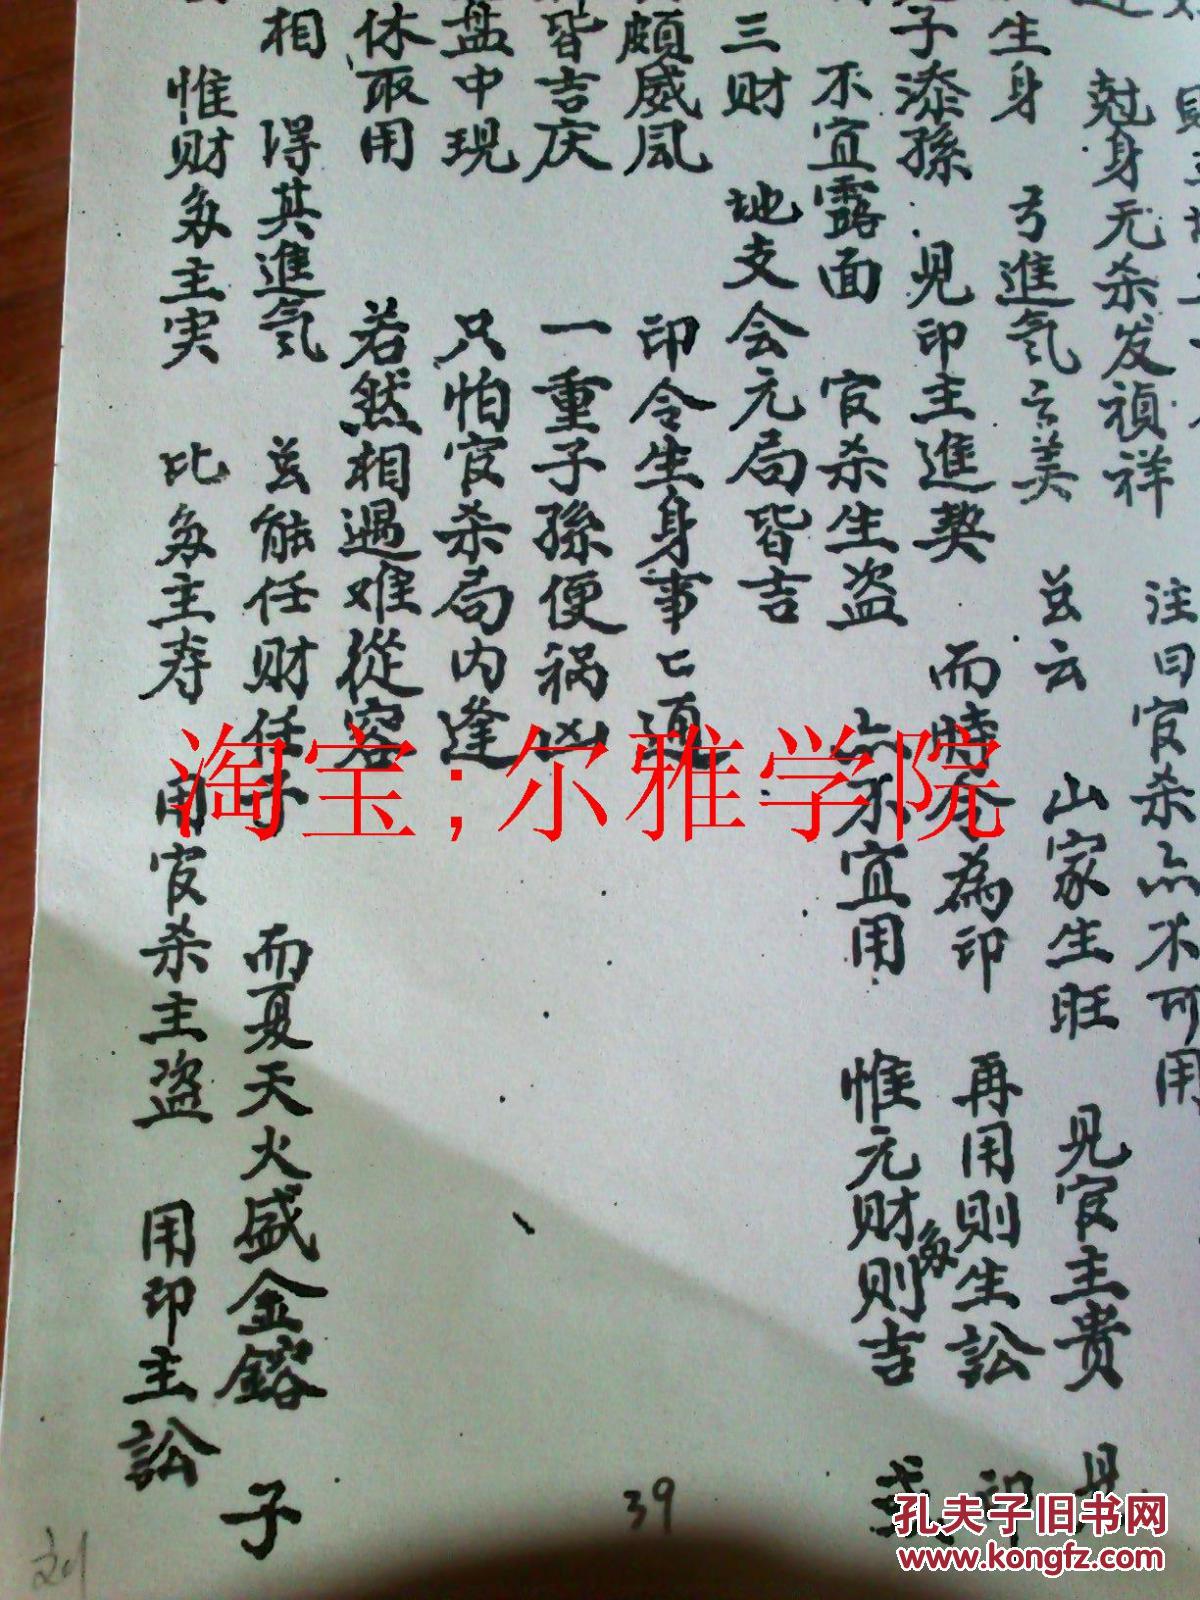 注曰官杀亦不可用
尅身无杀发祯祥
生身 亏進氣云美 兹云 山家生旺 见官主贵 见
子添孫 见印主進契 而時令為印 再用则生訟 印
不宜露面 官杀生盗 亦不宜用 惟元财多则吉 或
三财 地支会元局皆吉
颇威風 印令生身事亡通
皆吉庆 一重子孫便祸凶
盘中現 只怕官杀局内逢
休取用 若然相遇难從容
相 得其進氣 兹能任财任子 而夏天火盛金鎔 子
惟财多主实 比多主寿 用官杀主盗 用印主訟
39
刘
淘宝;尔雅学院
孔夫子旧书网
www.kongfz.com